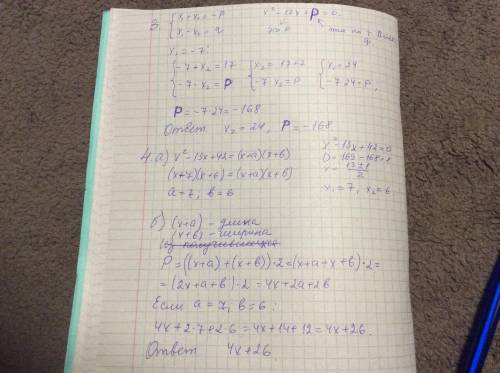 3. { x₁ + x₂ = -p    x² - 17x + P = 0.
{ x₁ · x₂ = q    это p    это
x₁ = -7:
{ -7 + x₂ = 17   { x₂ = 17 + 7   { x₂ = 24
{ -7 · x₂ = P   { -7 · x₂ = P   { -7 · 24 = P.
P = -7 · 24 = -168
Ответ x₂ = 24, P = -168.
4. а) x² - 13x + 42 = (x+a)(x+b)    x² - 13x + 42 = 0
(x+7)(x+6) = (x+a)(x+b)    D = 169 - 168 = 1
a = 7, b = 6    x = 13±1/2
x₁ = 7, x₂ = 6
б) (x+a) - длина
(x+b) - ширина
P = ((x+a) + (x+b)) · 2 = (x+a+x+b) · 2 =
= (2x+a+b) · 2 = 4x + 2a + 2b
Если a = 7, b = 6:
4x + 2·7 + 2·6 = 4x + 14 + 12 = 4x + 26.
Ответ 4x + 26.